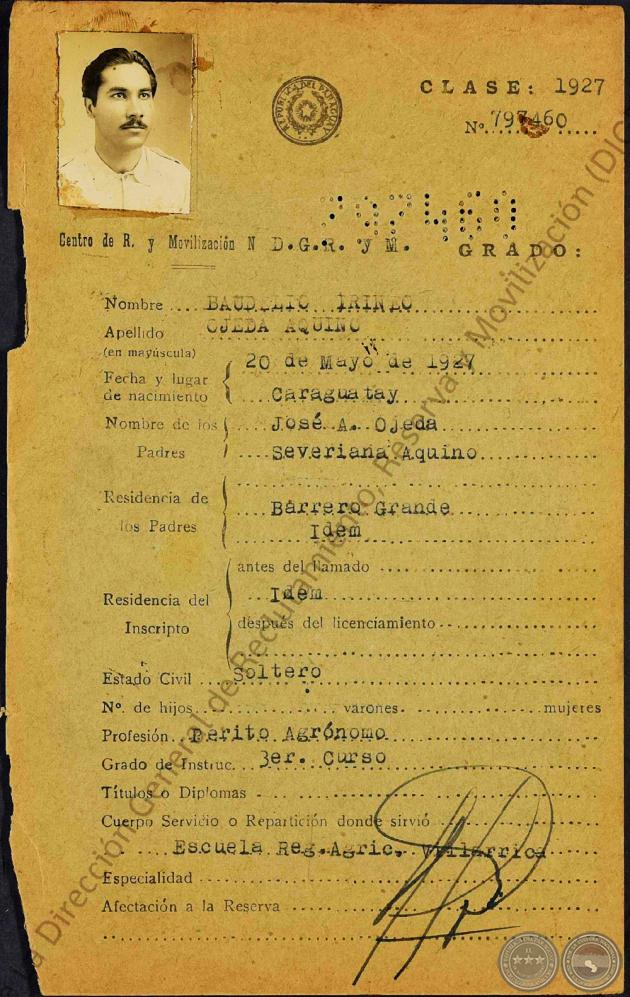 REPUBLICA DEL PARAGUAY
CLASE: 1927
Nº. 797460
797460
Centro de R. y Movilización N D.G.R. y M.
GRADO:
Nombre BAUDILIO IRINEO
Apellido OJEDA AQUINO
(en mayúscula)
Fecha y lugar de nacimiento 20 de Mayo de 1927
Caraguatay
Nombre de los Padres José A. Ojeda
Severiana Aquino
Residencia de los Padres Barrero Grande
Idem
Residencia del Inscripto
antes del llamado
Idem
después del licenciamiento
Estado Civil Soltero
Nº. de hijos varones mujeres
Profesión Perito Agrónomo
Grado de Instruc. 3er. Curso
Títulos o Diplomas
Cuerpo Servicio o Repartición donde sirvió
Escuela Reg.Agric. Villarrica
Especialidad
Afectación a la Reserva
la Dirección General de Reclutamiento, Reserva y Movilización (DIG